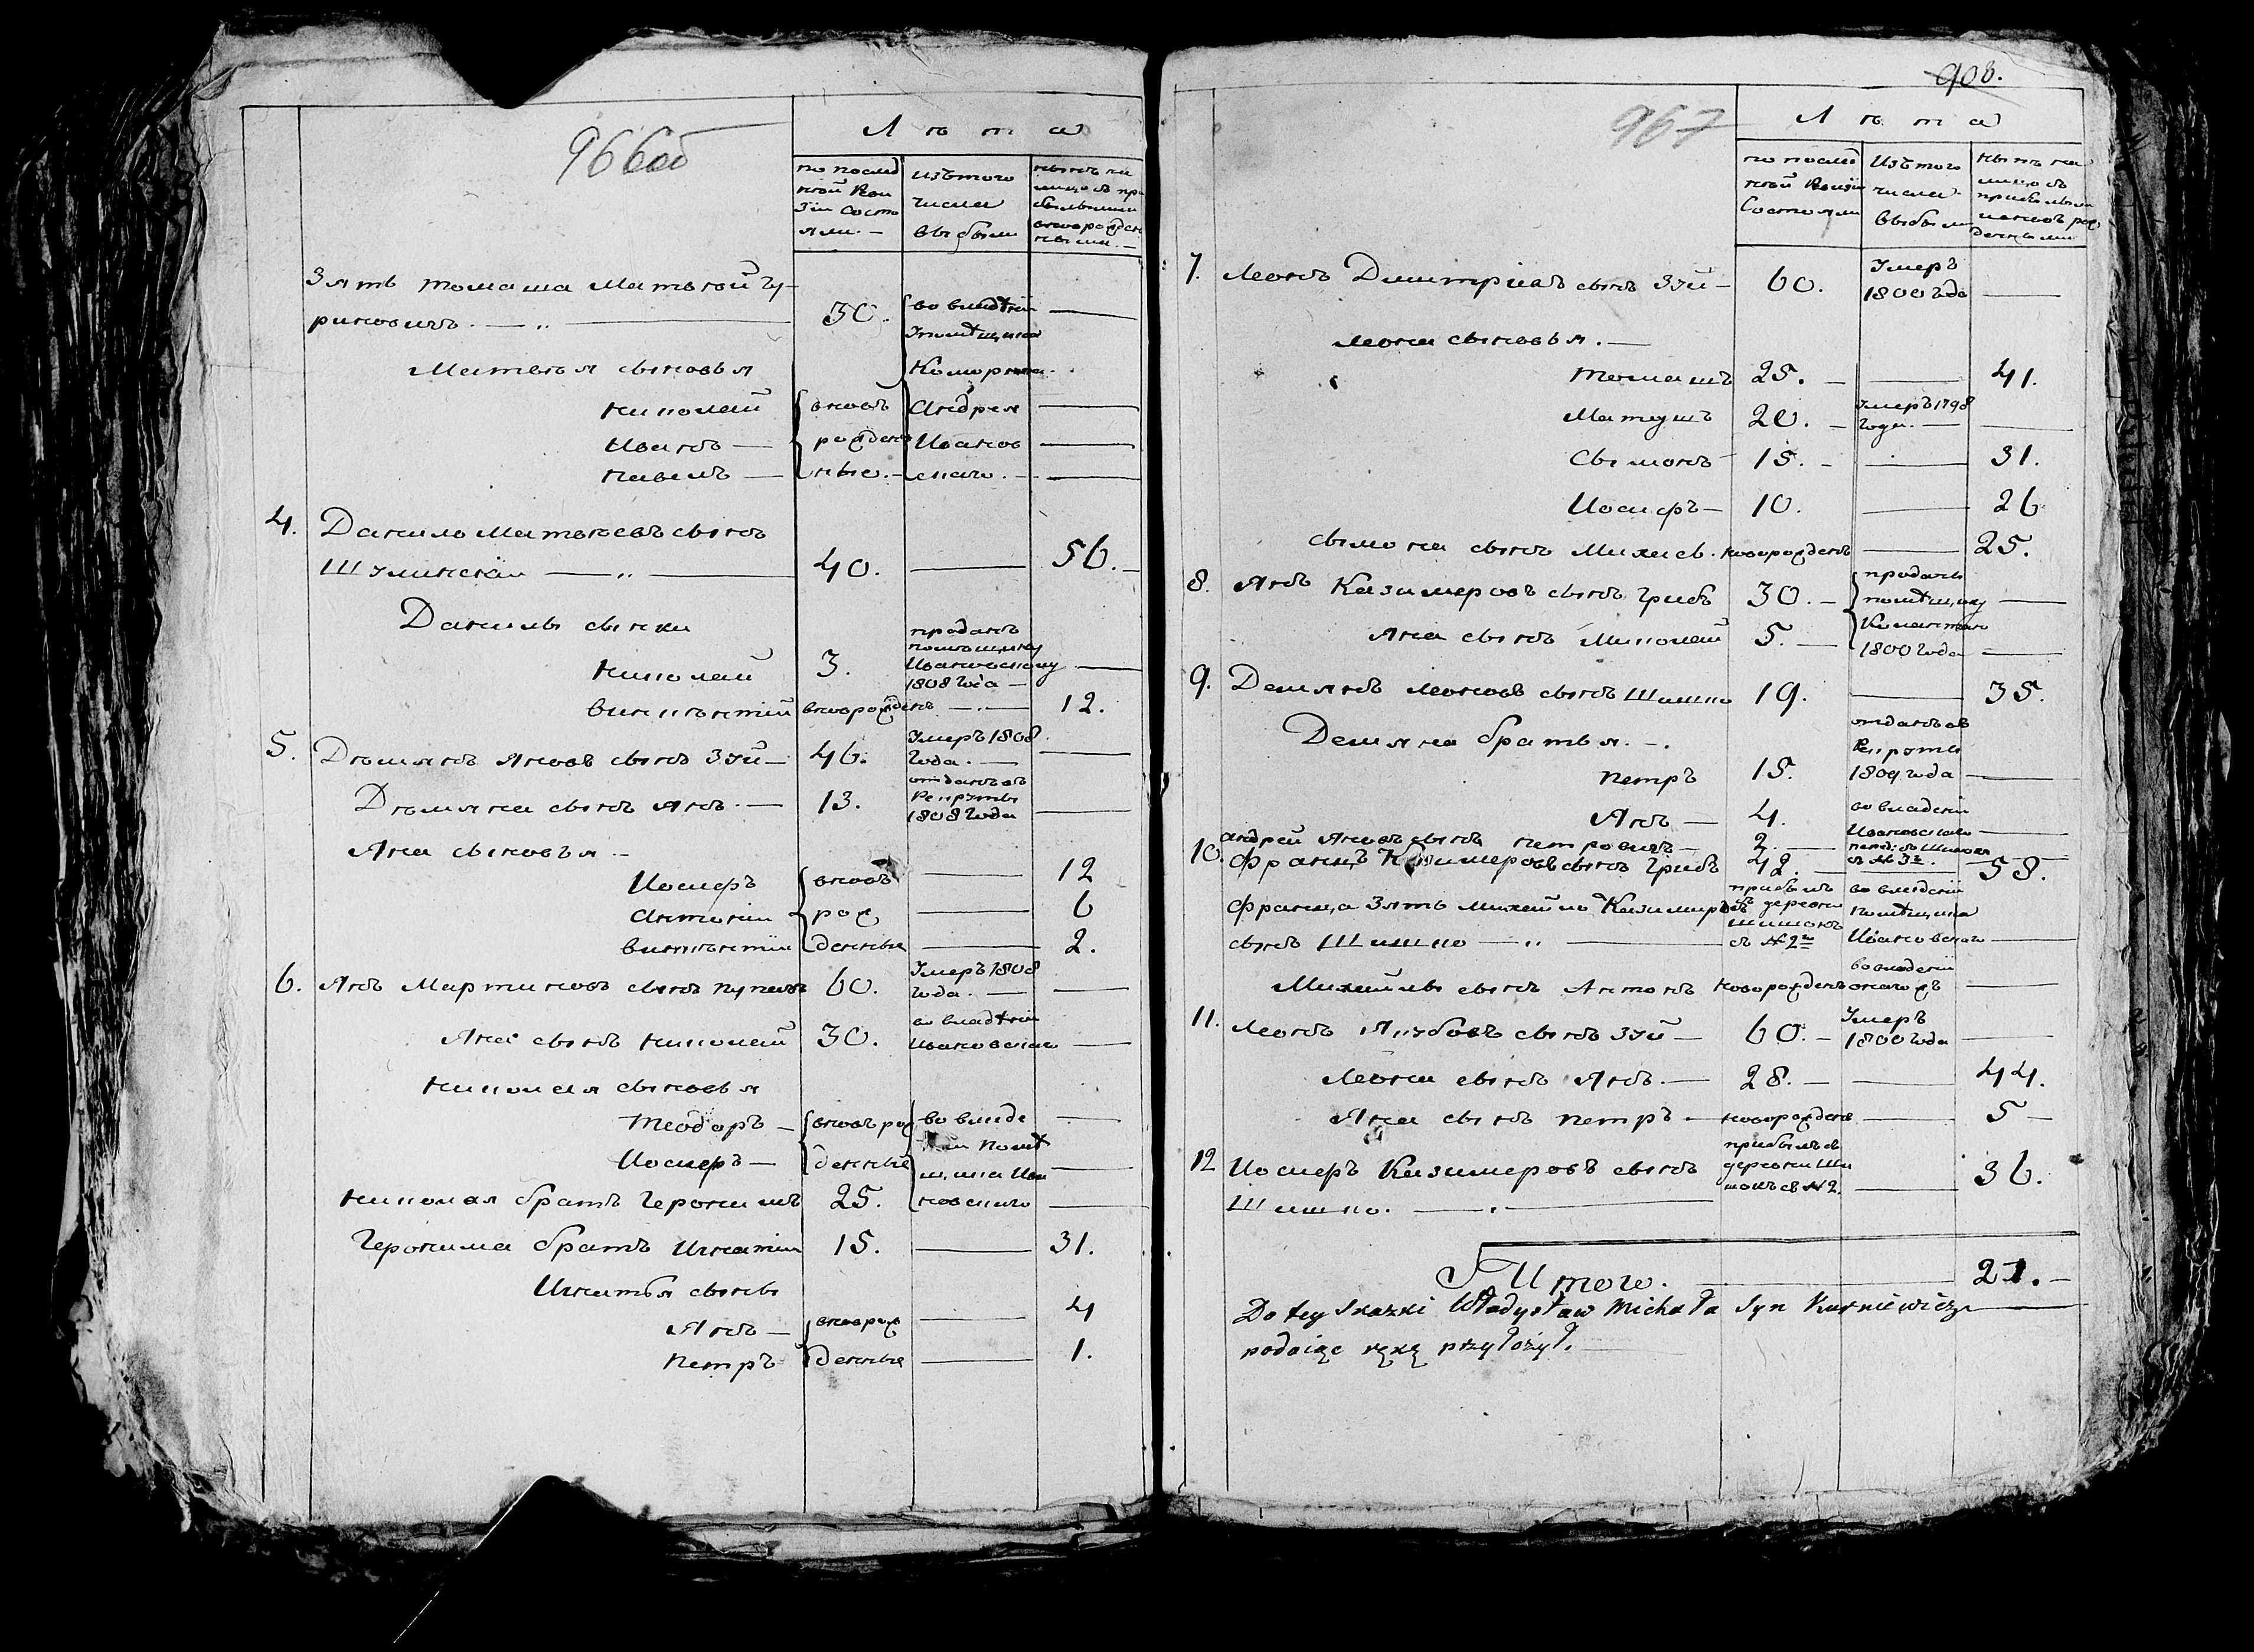 966об
Лѣта
по послѣд
ней Реви
зіи Состо
яли. —
изъ того
числа
выбыли
нынѣ на
лицо съ при
былыми
вновь рожден
ными. —
Зять Томаша Матвей
риновичъ. — „ —
30.
во владѣніи
Помѣщика
Коморника
Матвея сыновья
Николай вновь Андрея —
Иванъ — рожден Иванов —
Павелъ — ные. — скаго. — —
4. Данило Матвеевъ сынъ
Шумински — „ — 40. — 56. —
Данилы сынки
Николай 3. проданъ
помещику
Ивановскому —
1808 года —
Викентий вноврожденъ — „ — 12.
5. Дємянъ Яновъ сынъ Зуй — 46. Умеръ 1808
Года. — —
Дємяна сынъ Янъ. — 13. отданъ въ
Рекруты
1808 Года —
Яна сыновья —
Иосифъ вновь — 12
Антони рож — 6
Викентии денные — 2.
6. Янъ Мартиновъ сынъ 60. Умеръ 1808
Года. — —
Яна сынъ Николай 30. во владѣніи
Ивановскаго —
Николая сыновья
Теодоръ — вновь рож во владе —
Иосифъ — денные нии Помѣ
щика Ива —
Николая братъ Героними 25. новскаго —
Геронима братъ Игнатіи 15. — 31.
Игнатья сыны
Янъ — вноврож — 4
Петръ денные — 1.
908.
967
Лѣта
по послед
ней Ревизіи
Состояли
Изъ того
числа
выбыли
нынѣ на
лицо съ
прибылыми
и вновь рож
денными
7. Леонъ Дмитріевъ сынъ Зуй — 60. Умеръ
1800 года —
Леона сыновья. —
Томашъ 25. — — 41.
Матушъ 20. — Умеръ 1798
Года. — —
Сымонъ 15. — — 31.
Иосифъ — 10. — 26
Сымона сынъ Михаль. новорожденъ — 25.
8. Янъ Казимеровъ сынъ Грибъ 30. — проданы
помѣщику —
Яна сынъ Миколай 5. —
1800 года —
9. Демянъ Леоновъ сынъ Шишко 19. — 35.
Демяна братья. —.
Петръ 15. отданъ въ
Рекруты
1809 года —
Янъ — 4. во владеніи
Ивановскаго —
Андрей Яновъ сынъ Петровичъ — 2. —
съ № 3го. —
10. Францъ Казимеровъ сынъ Грибъ 42. — 58.
Франца Зять Михайло Казимировъ прибылъ во владеніи
съ деревни Помѣщика
сынъ Шишко — „ — Шишокъ
съ № 2го Ивановскаго —
Михайлы сынъ Антонъ новорожденъ во владении
онагожъ —
11. Леонъ Якубовъ сынъ Зуй — 60. — Умеръ
1800 года —
Леона сынъ Янъ. — 28. — — 44.
Яна сынъ Петръ — новорожденъ — 5 —
12 Иосифъ Казимеровъ сынъ прибылъ съ
деревни Ши
шокъ съ № 2. — 36.
Шишко. — „ —
Итого. — 21. —
Do tey Skazki Władysław Michała Syn Kurniewicz —
podaiąc rękę przyłożył. —